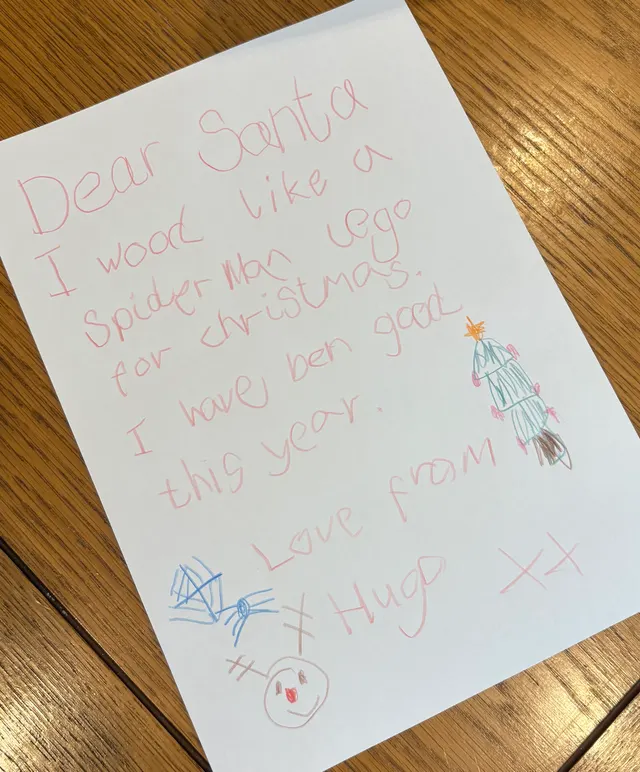 Dear Santa
I wood like a
spider Man Lego
for christmas.
I have ben good
this year.
Love from
Hugo XX